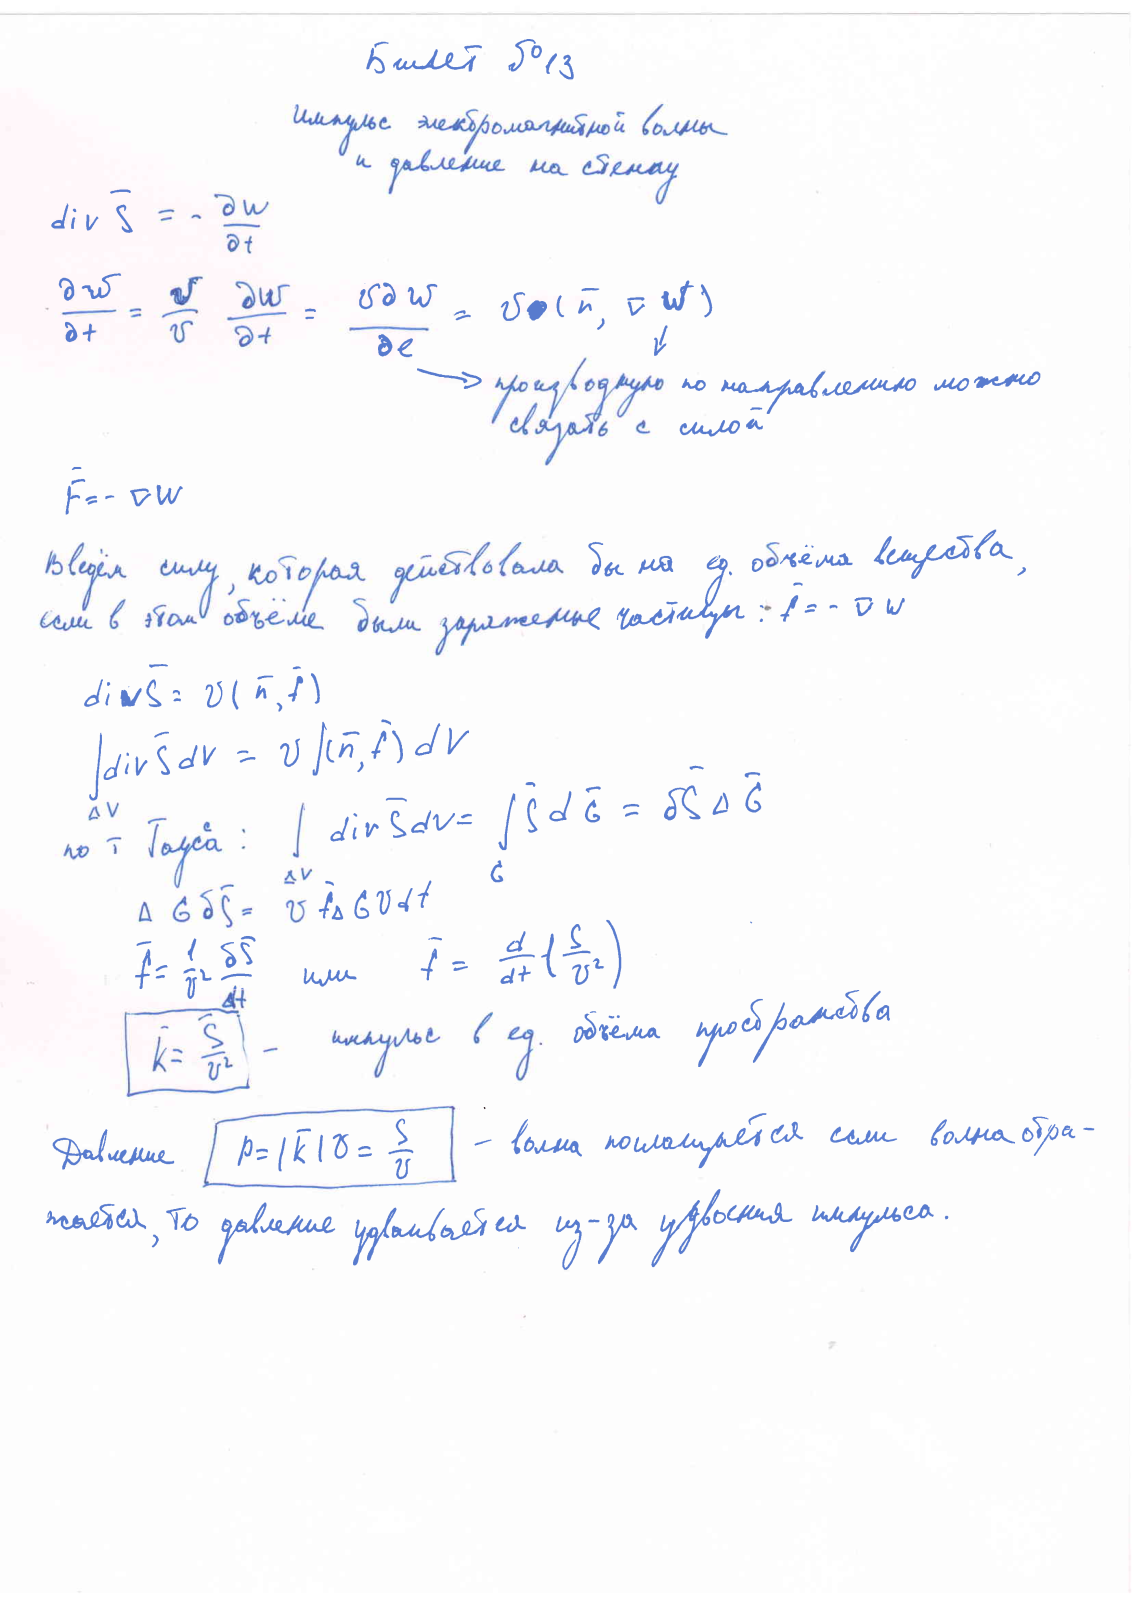 Билет №13
Импульс электромагнитной волны
и давление на стенку
div S̄ = - ∂w/∂t
∂w/∂t = v/v ∂w/∂t = v∂w/∂l = v·(n̄, ∇w)
производную по направлению можно
связать с силой
F̄ = - ∇W
Введём силу, которая действовала бы на ед. объёма вещества,
если в этом объёме были заряженные частицы: f̄ = - ∇w
div S̄ = v(n̄, f̄)
∫ΔV div S̄ dV = v ∫(n̄, f̄) dV
по т Гауса: ∫ΔV div S̄ dV = ∫G S̄ d Ḡ = δS̄ Δ Ḡ
Δ G δS̄ = v f̄ Δ G v dt
f̄ = 1/v² δS̄/dt или f̄ = d/dt (S/v²)
k̄ = S̄/v² - импульс в ед. объёма пространства
Давление p = |k̄| v = S/v - волна поглащается если волна отра-
жается, то давление удваивается из-за удвоения импульса.